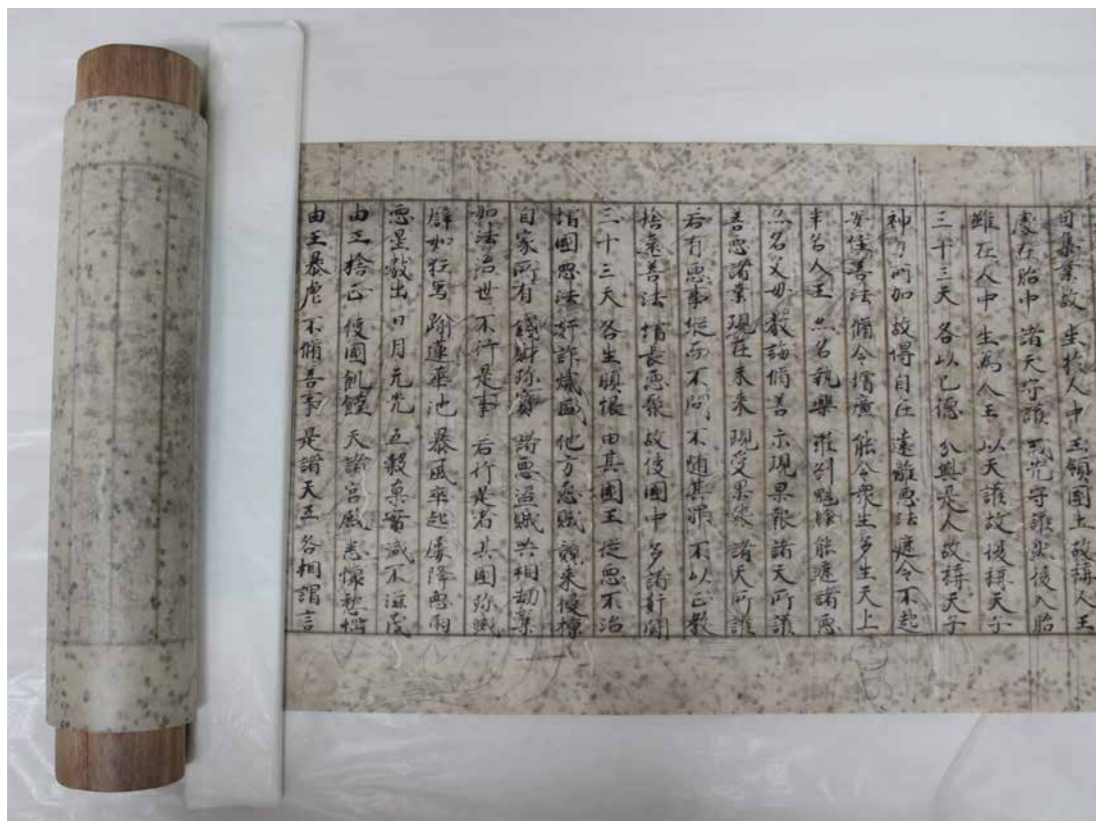 因集業故 生於人中 王領國土 故稱人王
處在胎中 諸天守護 或先守護 然後入胎
雖在人中 生為人王 以天護故 復稱天子
三十三天 各以己德 分與是人 故稱天子
神力所加 故得自在 遠離惡法 遮令不起
安住善法 脩令增廣 能令衆生 多生天上
半名人王 亦名執樂 羅剎魁膾 能遮諸惡
亦名父母 教誨脩善 示現果報 諸天所護
善惡諸業 現在未來 現受果報 諸天所護
若有惡事 縱而不問 不隨其罪 不以正教
捨棄善法 增長惡聚 故使國中 多諸奸鬪
三十三天 各生瞋恨 由其國王 縱惡不治
壞國惡法 奸詐熾盛 他方怨賊 競來侵掠
自家所有 錢財珎寶 諸惡盜賊 共相劫奪
如法治世 不行是事 若行是者 其國殄滅
譬如狂象 蹹蓮華池 暴風卒起 屢降惡雨
惡星數出 日月无光 五穀菓實 咸不滋茂
由王捨正 使國飢饉 天諸宮殿 悉懷愁惱
由王暴虐 不脩善事 是諸天王 各相謂言